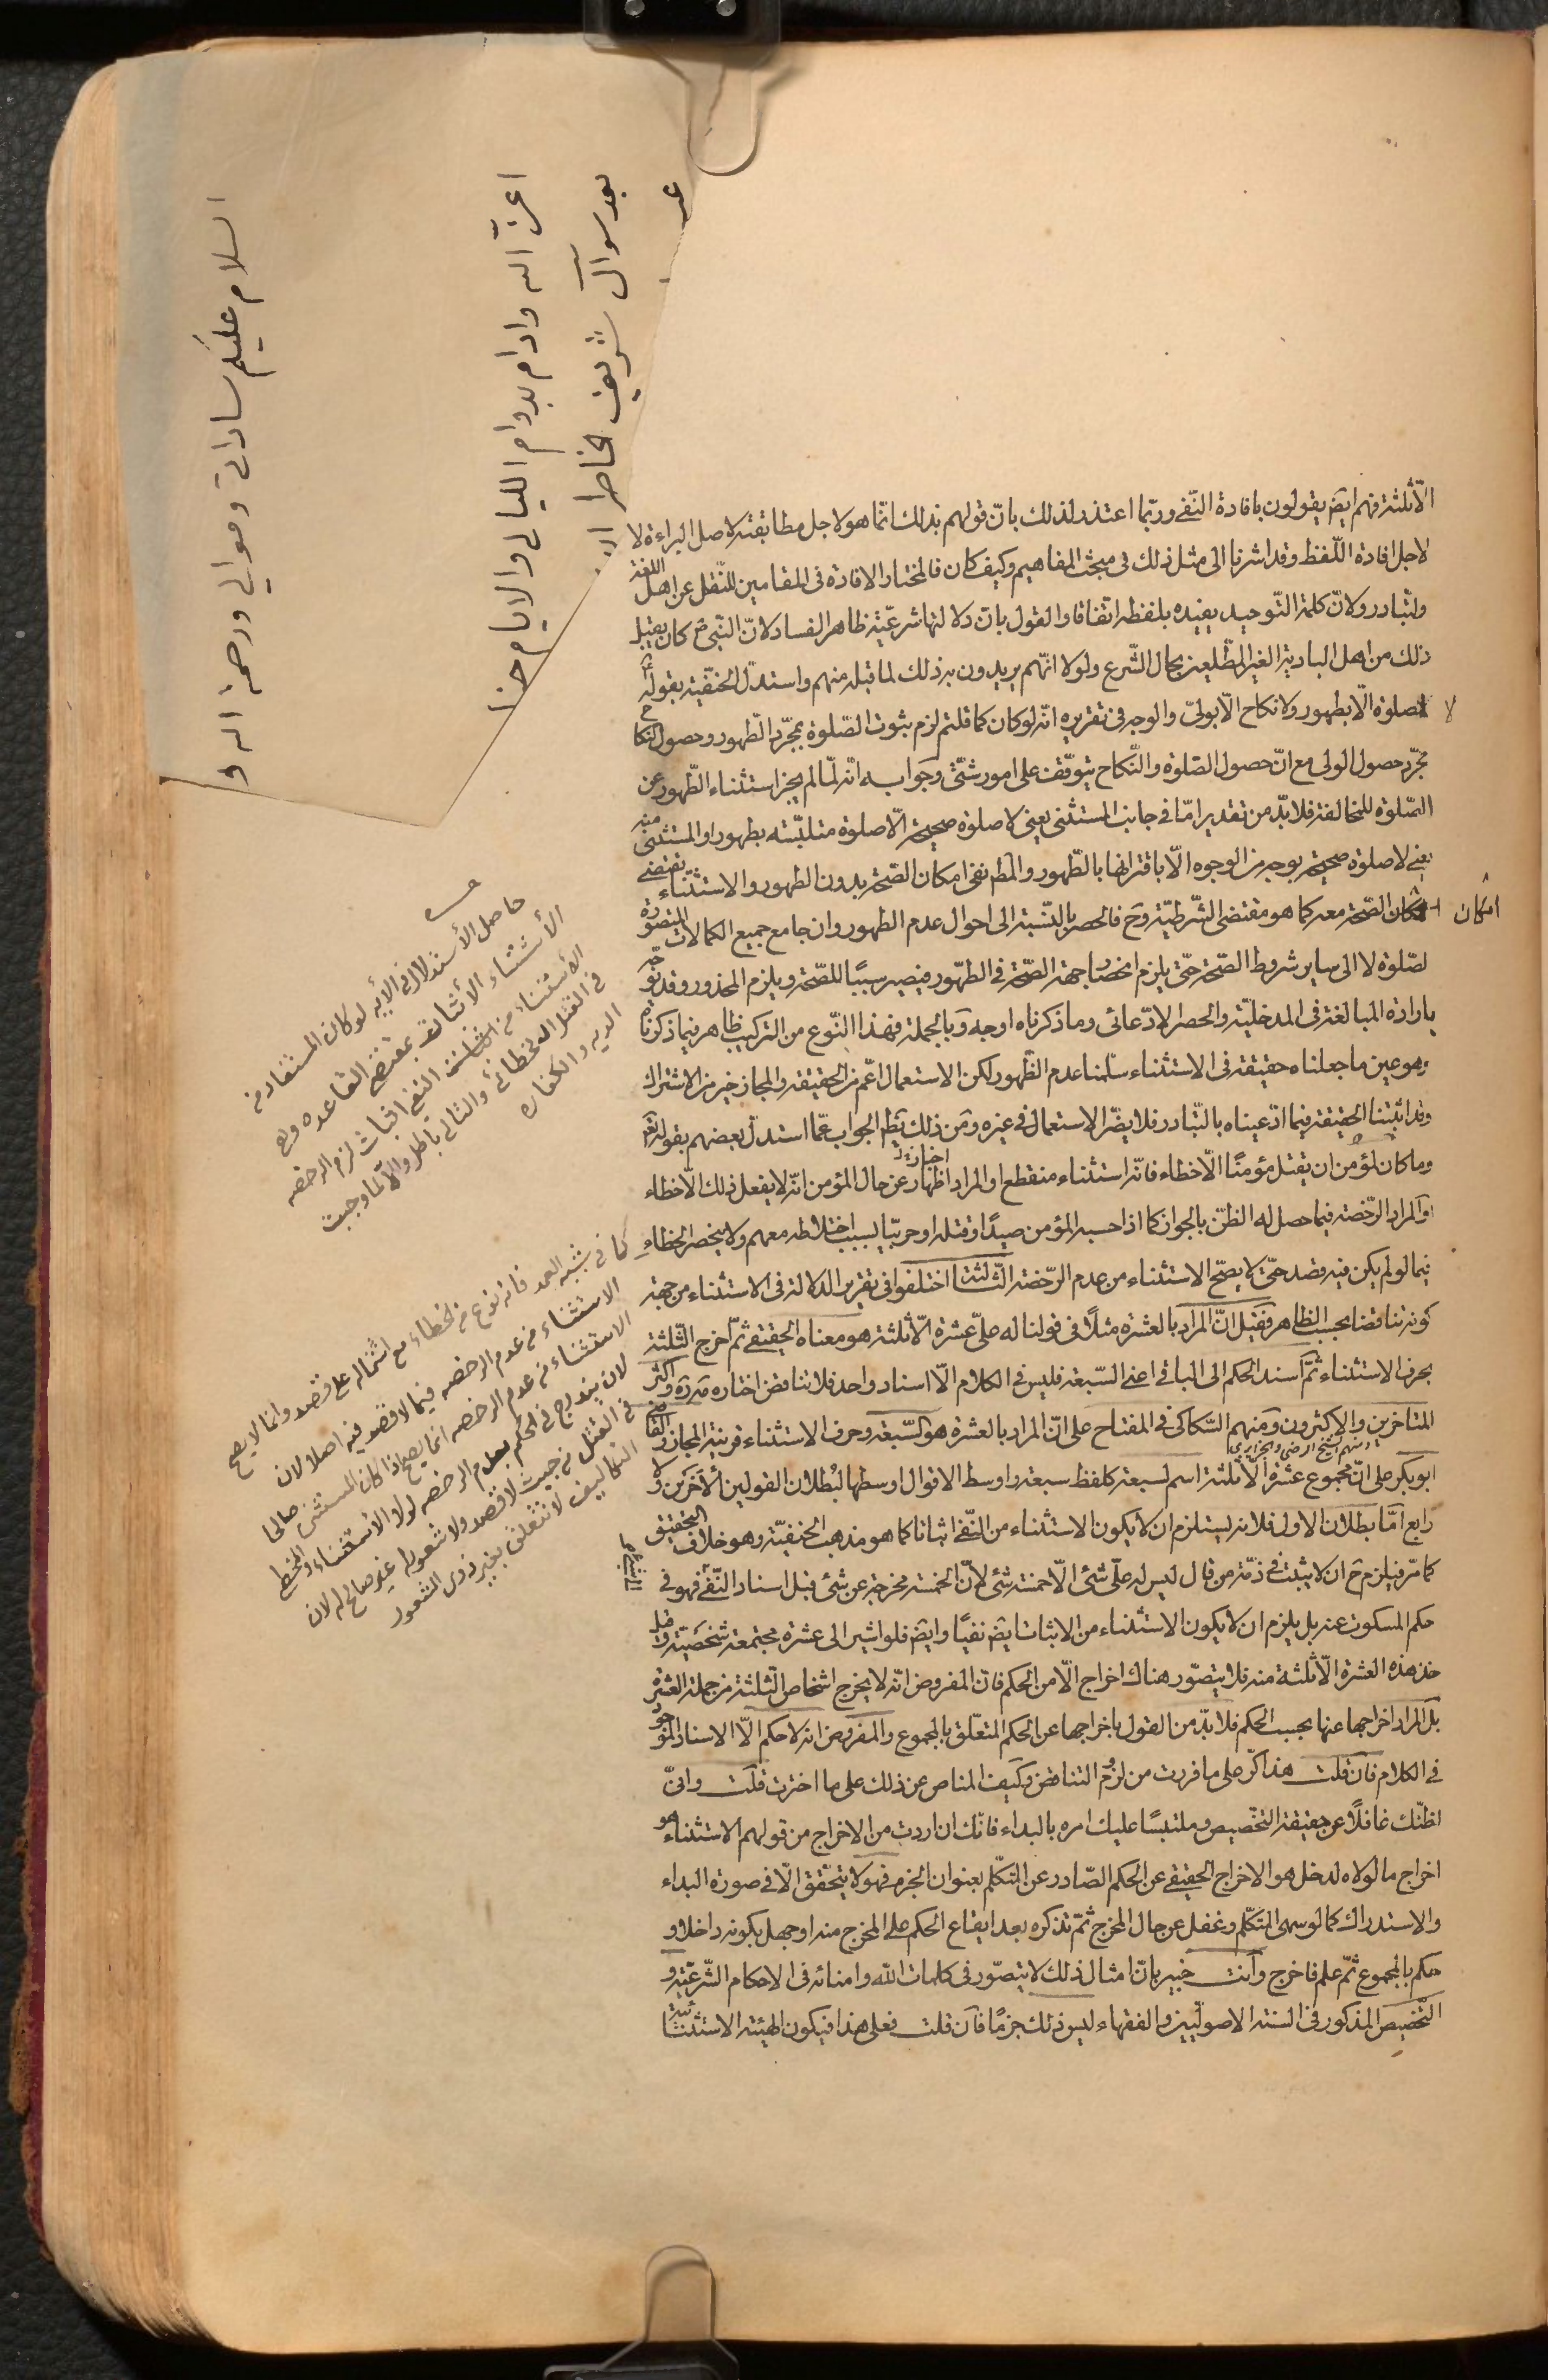 الّا ثلثة فهم ايضا يقولون بافادة النّفى وربّما اعتذر لذلك بانّ قولهم بذلك انّما هو لاجل مطابقته لاصل البراءة لا
لاجل افادة اللّفظ وقد اشرنا الى مثل ذلك فى مبحث المفاهيم وكيف كان فالمختار الافادة فى المقامين للنّقل عن اهل اللغة
ولتبادر ولانّ كلمة التّوحيد يفيده بلفظه اتفاقا والقول بانّ دلالتها شرعيّة ظاهر الفساد لانّ النّبى ص كان يقبل
ذلك من اهل البادية الغير المطّلعين بحال الشّرع ولولا انّهم يريدون به ذلك لما قبله منهم واستدلّ الحنفيّة بقوله ع
لا صلوة الّا بطهور ولا نكاح الّا بولىّ والوجه فى تقريره انّه لو كان كما قلتم لزم ثبوت الصّلوة بمجرّد الطّهور وحصول النكاح
بمجرّد حصول الولى مع انّ حصول الصّلوة والنّكاح يتوقّف على امور شتّى وجوابه انّه لمّا لم يجز استثناء الطّهور عن
الصّلوة للمخالفة فلا بدّ من تقدير امّا فى جانب المستثنى يعنى لا صلوة صحيحة الّا صلوة متلبّسة بطهور او المستثنى منه
يعنى لا صلوة صحيحة بوجه من الوجوه الّا باقترانها بالطّهور والمط نفى امكان الصّحة بدون الطهور والاستثناء يقتضى
امكان الصّحة معه كما هو مقتضى الشّرطيّة وح فالحصر بالنّسبة الى احوال عدم الطهور وان جامع جميع الكمالات المتصوّرة
لصّلوة لا الى ساير شروط الصّحة حتّى يلزم انحصار جهة الصّحّة فى الطّهور فيصير سببًا للصّحة ويلزم المحذور وقد يوجّه
بارادة المبالغة فى المدخليّة والحصر الادّعائى وما ذكرناه اوجه وبالجملة فهذا النّوع من التركيب ظاهر فيما ذكرناه
وهو عين ما جعلناه حقيقة فى الاستثناء سلّمنا عدم الظّهور لكن الاستعمال اعّم من الحقيقة والمجاز خير من الاشتراك
وقد اثبتنا الحقيقة فيما ادّعيناه بالتّبادر فلا يضّر الاستعمال فى غيره ومن ذلك يظهر الجواب عمّا استدلّ بعضهم بقوله تعالى
وما كان لمؤمن ان يقتل مؤمنًا الّا خطاء فانّه استثناء منقطع او المراد اظهار عن حال المؤمن انّه لا يفعل ذلك الّا خطاء
او المراد الرّخصة فيما حصل له الظنّ بالجواز كما اذا حسبه المؤمن صيدًا وقتله او حربيّا بسبب اختلاطه معهم ولا ينحصر الخطاء
فيما لو لم يكن فيه قصد حتّى لا يصحّ الاستثناء من عدم الرّخصة الثّالثة اختلفوا فى تقرير الدلالة فى الاستثناء من جهة
كونه تناقضا بحسب الظاهر فقيل انّ المراد بالعشرة مثلًا فى قولنا له علىّ عشرة الّا ثلثة هو معناه الحقيقى ثمّ اخرج الثّلثة
بحرف الاستثناء ثمّ اسند الحكم الى الباقى اعنى السّبعة فليس فى الكلام الّا اسناد واحد فلا تناقض اختاره العلّامة واكثر
المتأخرين والاكثرون ومنهم السّكاكى فى المفتاح على انّ المراد بالعشرة هو السّبعة وحرف الاستثناء قرينة المجاز والقاضى
ابو بكر على انّ مجموع عشرة الّا ثلثة اسم لسبعة كلفظ سبعة واوسط الاقوال اوسطها لبُطلان القولين الآخرين ولا
رابع امّا بطلان الاول فلانه يستلزم ان لا يكون الاستثناء من النّفى اثباتا كما هو مذهب الحنفيّة وهو خلاف التحقيق
كما مرّ فيلزم ح ان لا يثبت فى ذمّة من قال ليس له علىّ شئ الّا خمسة شئ لانّ الخمسة مخرجة عن شئ قبل اسناد النّفى فهو فى
حكم المسكوت عنه بل يلزم ان لا يكون الاستثناء من الاثبات ايضا نفيًا وايضا فلو اشير الى عشرة مجتمعة شخصيّة وقيل
خذ هذه العشرة الّا ثلثة منه فلا يتصّور هناك اخراج الّا من الحكم فانّ المفروض انّه لا يخرج اشخاص الثّلثة من جملة العشرة
بل المراد اخراجها عنها بحسب الحكم فلا بدّ من القول باخراجها عن الحكم المتعلّق بالمجموع والمفروض انه لا حكم الّا الاسناد الموجود
فى الكلام فان قلت هذا كرّ على ما فررت من لزوم التناقض وكيف المناص عن ذلك على ما اخترت قلت وانّى
اظنّك غافلًا عن حقيقة التخصيص وملتبسًا عليك امره بالبداء فانّك ان اردت من الاخراج من قولهم الاستثناء هو
اخراج ما لولاه لدخل هو الاخراج الحقيقى عن الحكم الصّادر عن المتكلّم بعنوان الجزم فهو لا يتحّقق الّا فى صورة البداء
والاستدراك كما لو سهى المتكلّم وغفل عن حال المخرج ثمّ تذكره بعد ايقاع الحكم على المخرج منه او جهل بكونه داخلا و
حكم بالمجموع ثمّ علم فاخرج وانت خبير بانّ امثال ذلك لا يتصّور فى كلمات الله وامنائه فى الاحكام الشّرعيّة و
التّخصيص المذكور فى السنة الاصوليّين والفقهاء ليس ذلك جزمًا فان قلت فعلى هذا فيكون الهيئة الاستثنائيّة
لا
امكان
اخبار
ومنهم الشيخ الرضى
حاصل الأستدلال فى الأيه لو كان المستفاد من
الأستثناء الأثبات بمقتضى القاعده وهو
الأستثناء من النفى اثبات لزم الرخصه
فى القتل الخطائى والتالى باطل والّا لما وجبت
الديه والكفاره
كما فى شبه العمد فانه نوع من الخطاء مع اشتماله على قصد وانما لا يصح
الاستثناء من عدم الرخصه فيما لا قصد فيه اصلا لان
الاستثناء من عدم الرخصه انما يصح اذا كان المستثنى صالحا
لان يندرج فى الحكم بعدم الرخصه لولا الاستثناء والخطاء
فى القتل من حيث لا قصد ولا شعور له غير صالح له لان
التكاليف لا تتعلق بغير ذوى الشعور
السلام عليكم ساداتى وموالى ورحمة الله و
اعزّ الله وادام بدوام الليالى والايام
بعد سوآل شريف خاطر